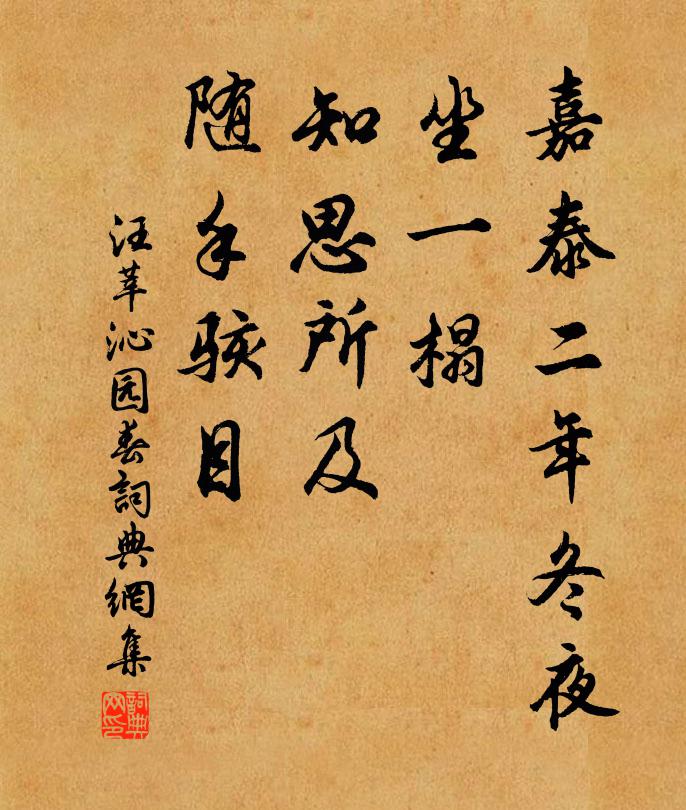 嘉泰二年冬夜
坐一榻
知思所及
随手骇目
汪莘沁园春詞典網集
詞典网印